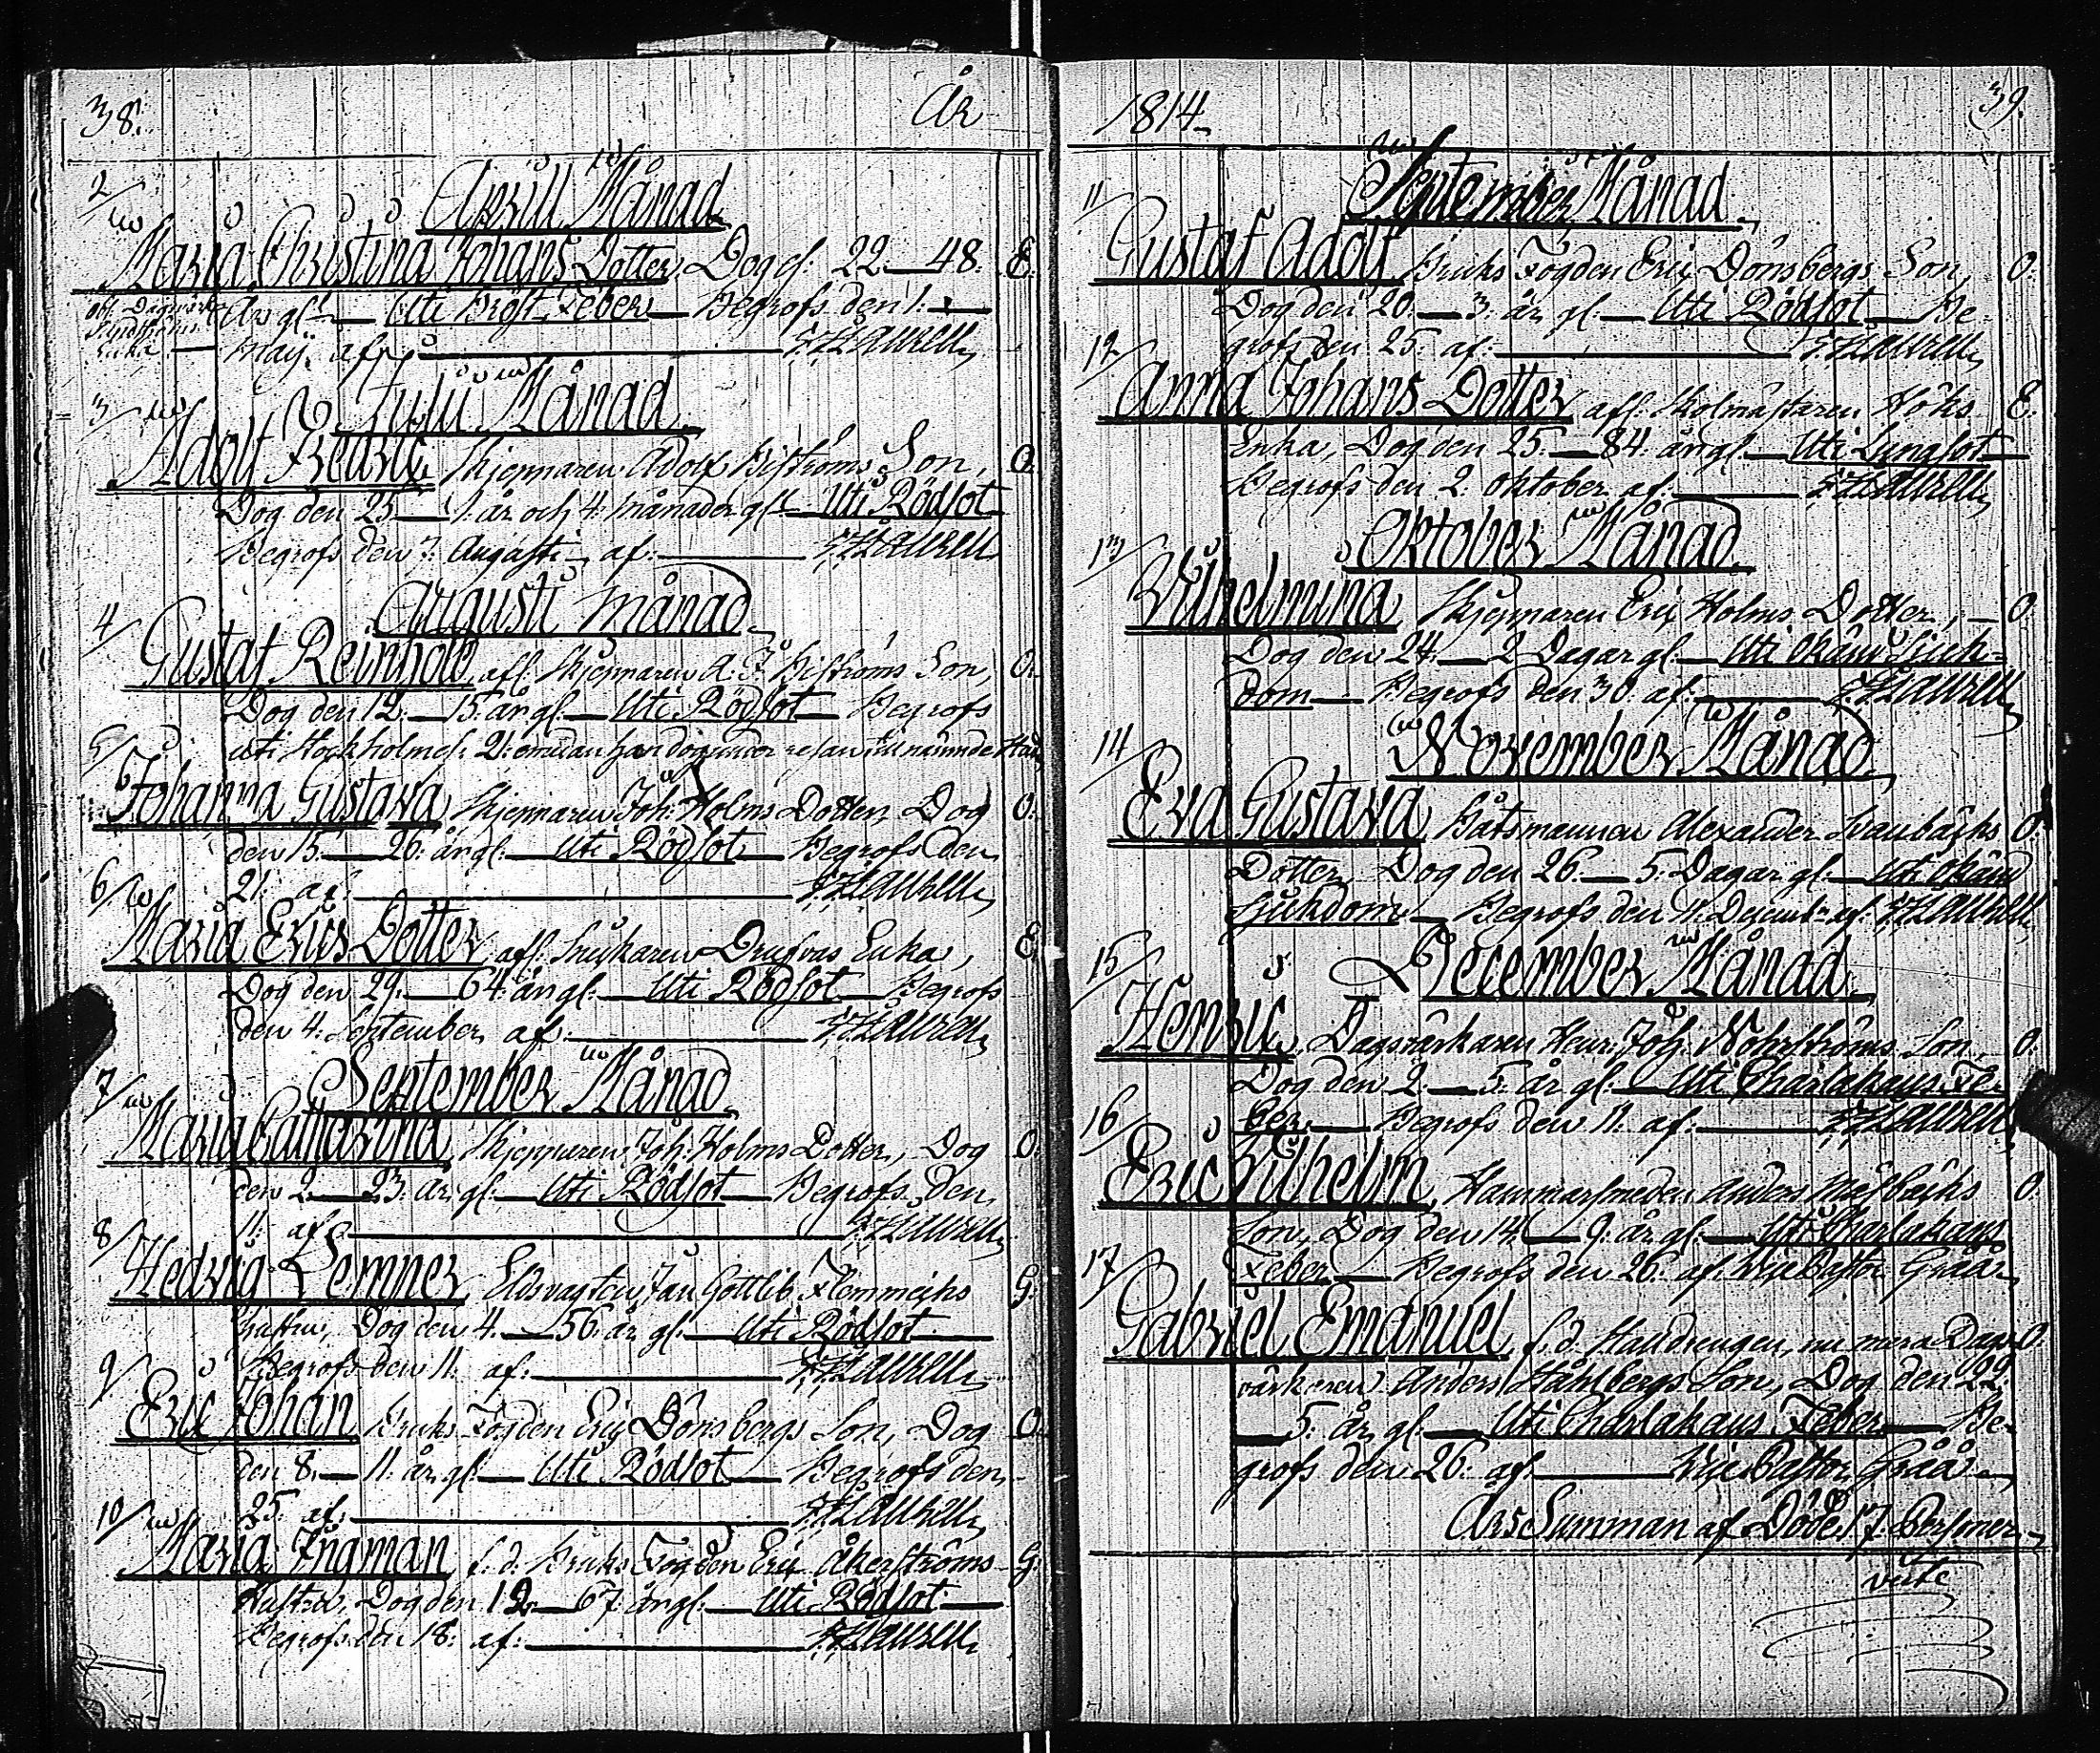 38. År
2/ Aprill Månad
Maria Christina Johans Dotter, Dog d. 22. — 48. E.
afl. Dagsvärk.
Enka
År gl. — Uti Bröst Feber — Begrofs den 1.
Maji. af.
3/ Julii Månad
Adolf Fredric, Skjepparen Adolf Biströms Son, O.
Dog den 25. — 1. år och 4. månader gl. — Uti Rödsot
Begrofs den 7. Augusti. af.
Augusti Månad
4/ Gustaf Reinhold, afl. Skjepparen A. F. Biströms Son, O.
Dog den 12. — 15. år gl. — Uti Rödsot — Begrofs
5/ uti Stockholm d. 21. emedan han dog under resan till nämnde Stad
Johanna Gustava, Skjepparen Joh. Holms Dotter, Dog O.
den 15. — 26. år gl. — Uti Rödsot — Begrofs den
6/ 21. af.
Maria Erics Dotter, afl. Enka, E.
Dog den 29. — 64. år gl. — Uti Rödsot — Begrofs
den 4. September. af.
7/ September Månad
Maria Catharina, Skjepparen Joh. Holms Dotter, Dog O.
den 2. — 23. år gl. — Uti Rödsot — Begrofs den
8/ 11. af.
Hedvig Lemner, Jan Gottlib Flemmichs G.
Hustru, Dog den 4. — 56. år gl. — Uti Rödsot
9/ Begrofs den 11. af.
Eric Johan, Bruks Fogden Eric Dönsbergs Son, Dog O.
den 8. — 11. år gl. — Uti Rödsot — Begrofs den
10/ 25. af.
Maria Ingman, f. d. Bruks Fogden Eric Åkerströms G.
Hustru, Dog den 12. — 67. år gl. — Uti Rödsot
Begrofs den 18. af.
1814. 39.
11/ September Månad
Gustaf Adolf, Bruks Fogden Eric Dönsbergs Son, O.
Dog den 20. — 3. år gl. — Uti Rödsot — Be-
12/ grofs den 25. af.
Anna Johans Dotter, afl. Skolmästaren Höks E.
Enka, Dog den 25. — 84. år gl. — Uti Lungsot
Begrofs den 2. Oktober. af.
Oktober Månad
13/ Vilhelmina, Skjepparen Eric Holms Dotter, — O.
Dog den 24. — 2. Dagar gl. — Uti Okänd Sjuk-
dom — Begrofs den 30. af.
14/ November Månad
Eva Gustava, Båtsmannen Alexander Svanbäcks O.
Dotter, Dog den 26. — 5. Dagar gl. — Uti Okänd
Sjukdom — Begrofs den 11. Decembr. af.
15/ December Månad
Henric, Dagsvärkaren Henr. Joh. Nohrströms Son, O.
Dog den 2. — 5. år gl. — Uti Charlakans Fe-
16/ ber. — Begrofs den 11. af.
Eric Vilhelm, Hammarsmeden Anders O.
Son, Dog den 14. — 9. år gl. — Uti Charlakans
17/ Feber — Begrofs den 26. af. Vice Pastor Gråå
Gabriel Emanuel, f. d. Handrengen, nu mera Dags O.
värkaren Anders Ståhlbergs Son, Dog den 22.
— 5. år gl. — Uti Charlakans Feber — Be-
grofs den 26. af. — Vice Pastor Gråå
Års Summan af Döde 17. Personer